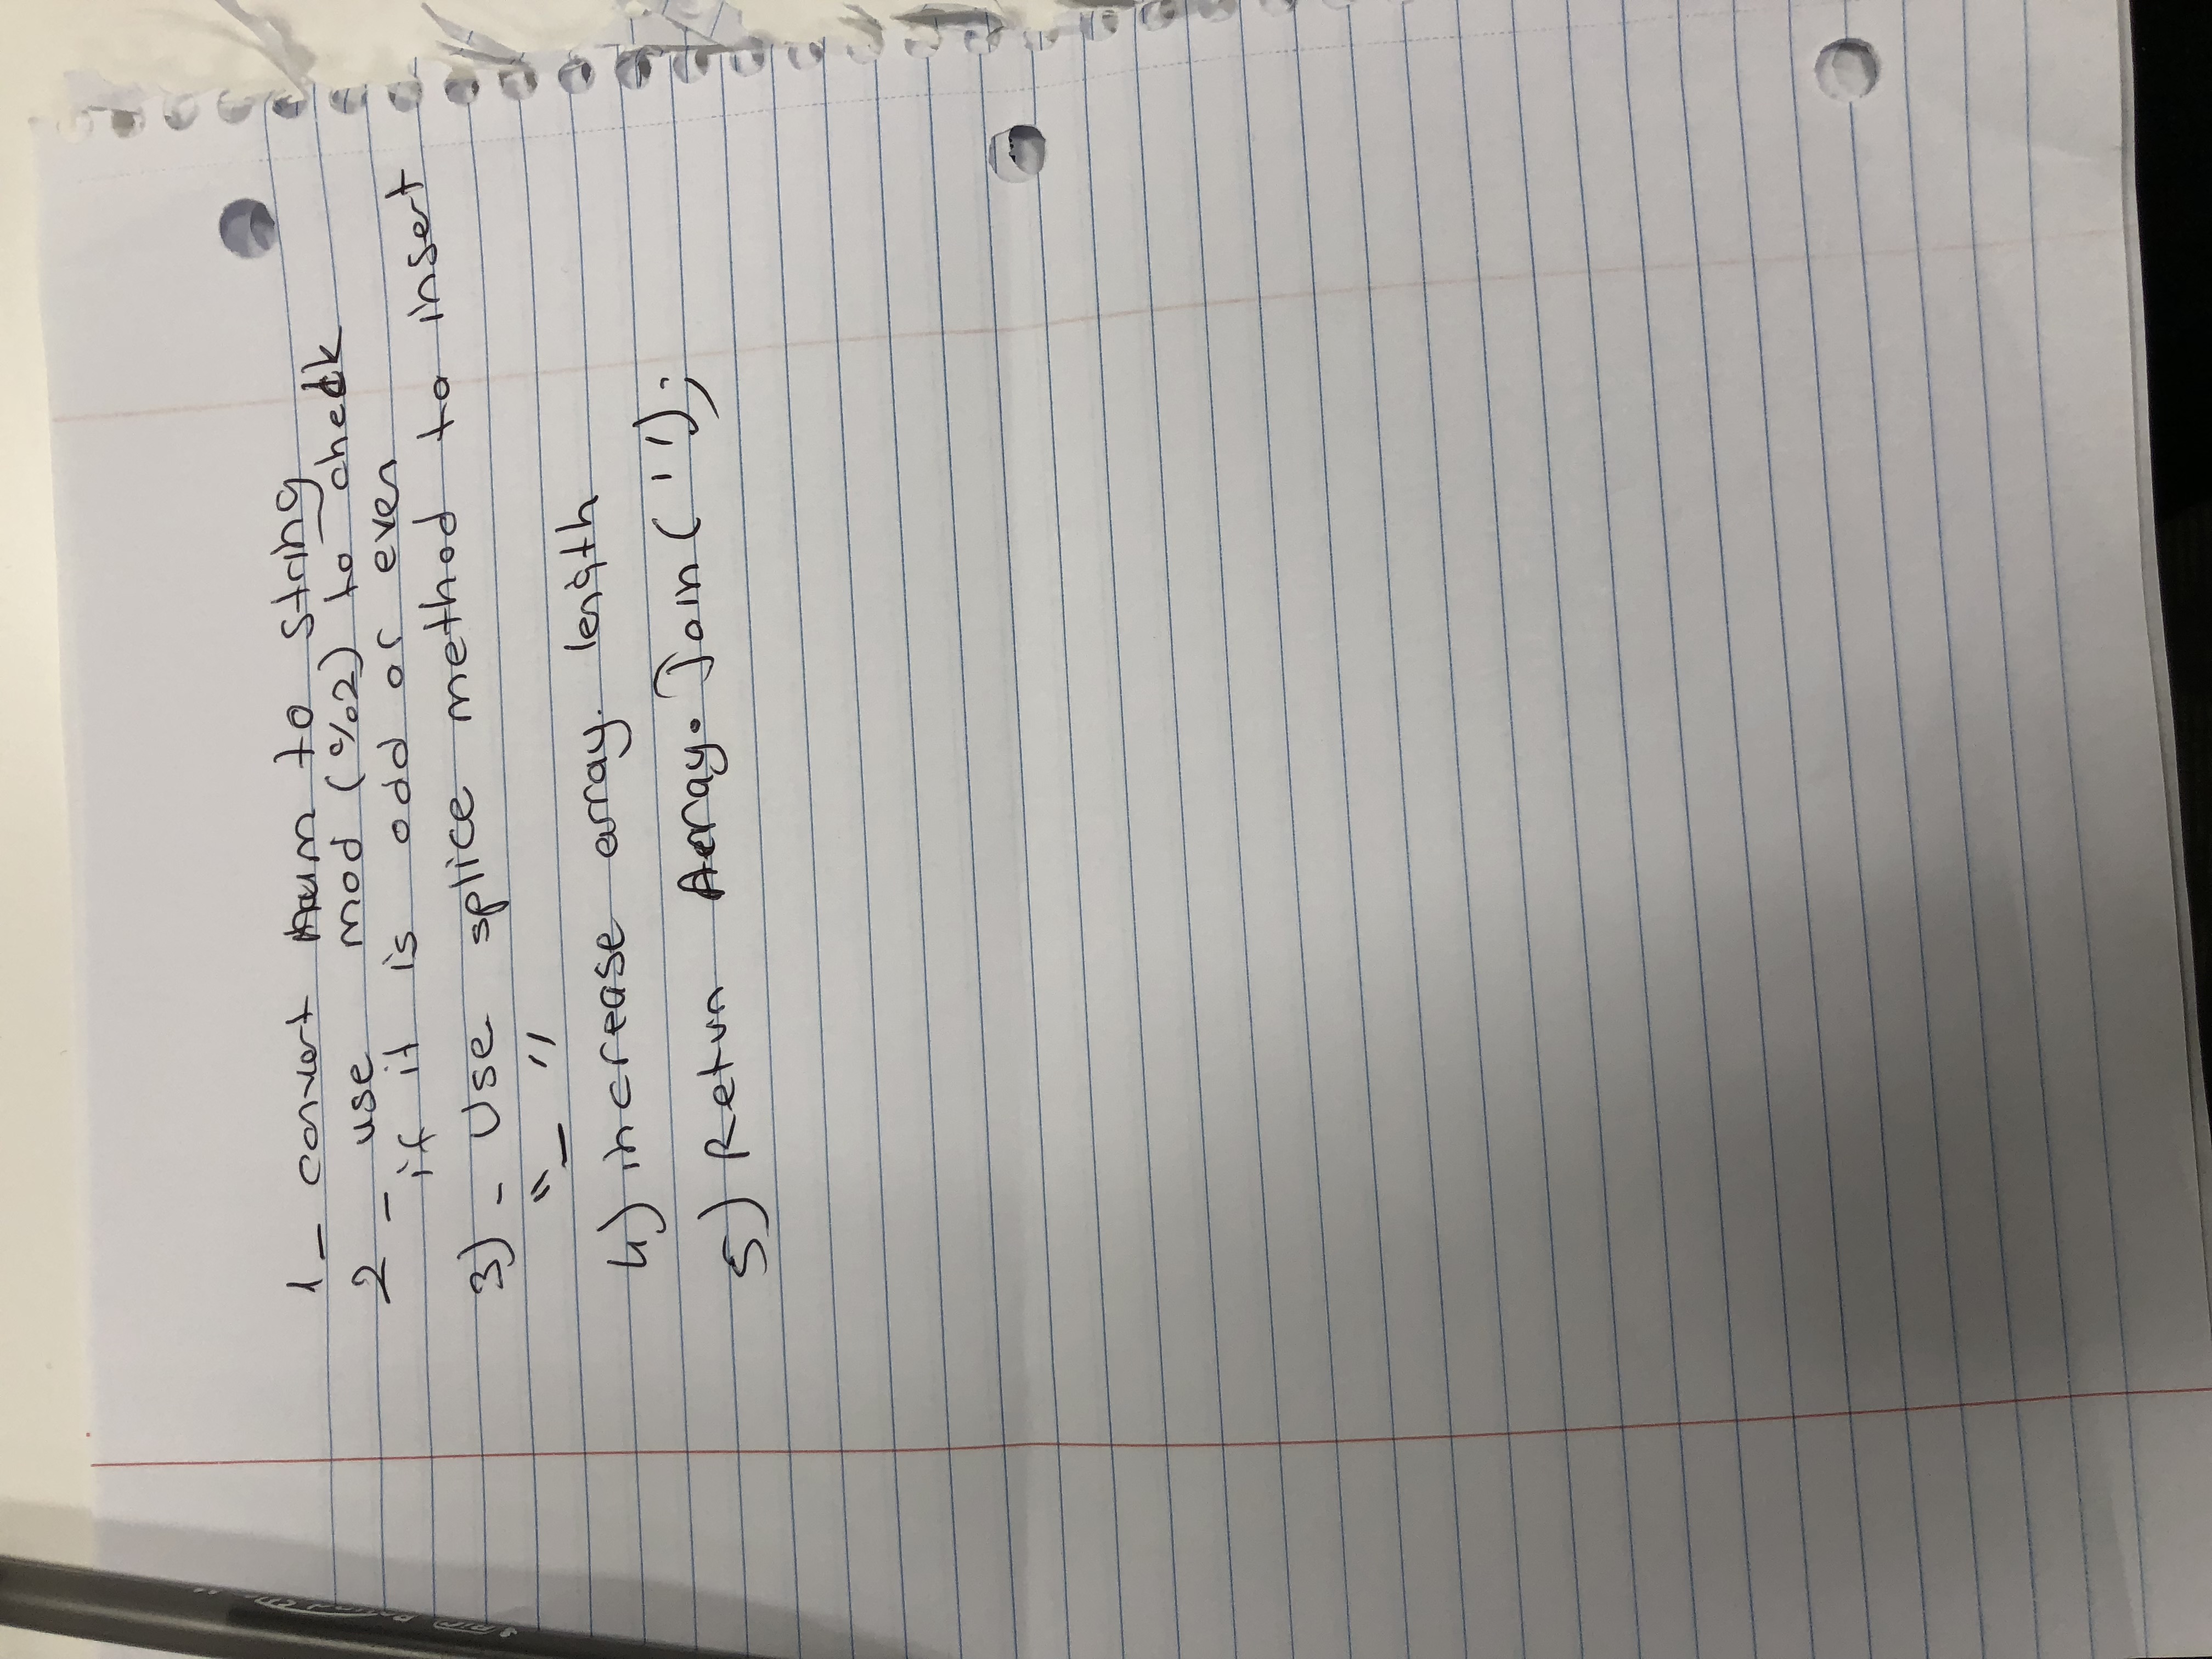 1 - convert num to string
2 - use mod (%2) to check
if it is odd or even
3) - Use splice method to insert
"_ "
4) increase array. length
5) Retun Array. Join ( '');